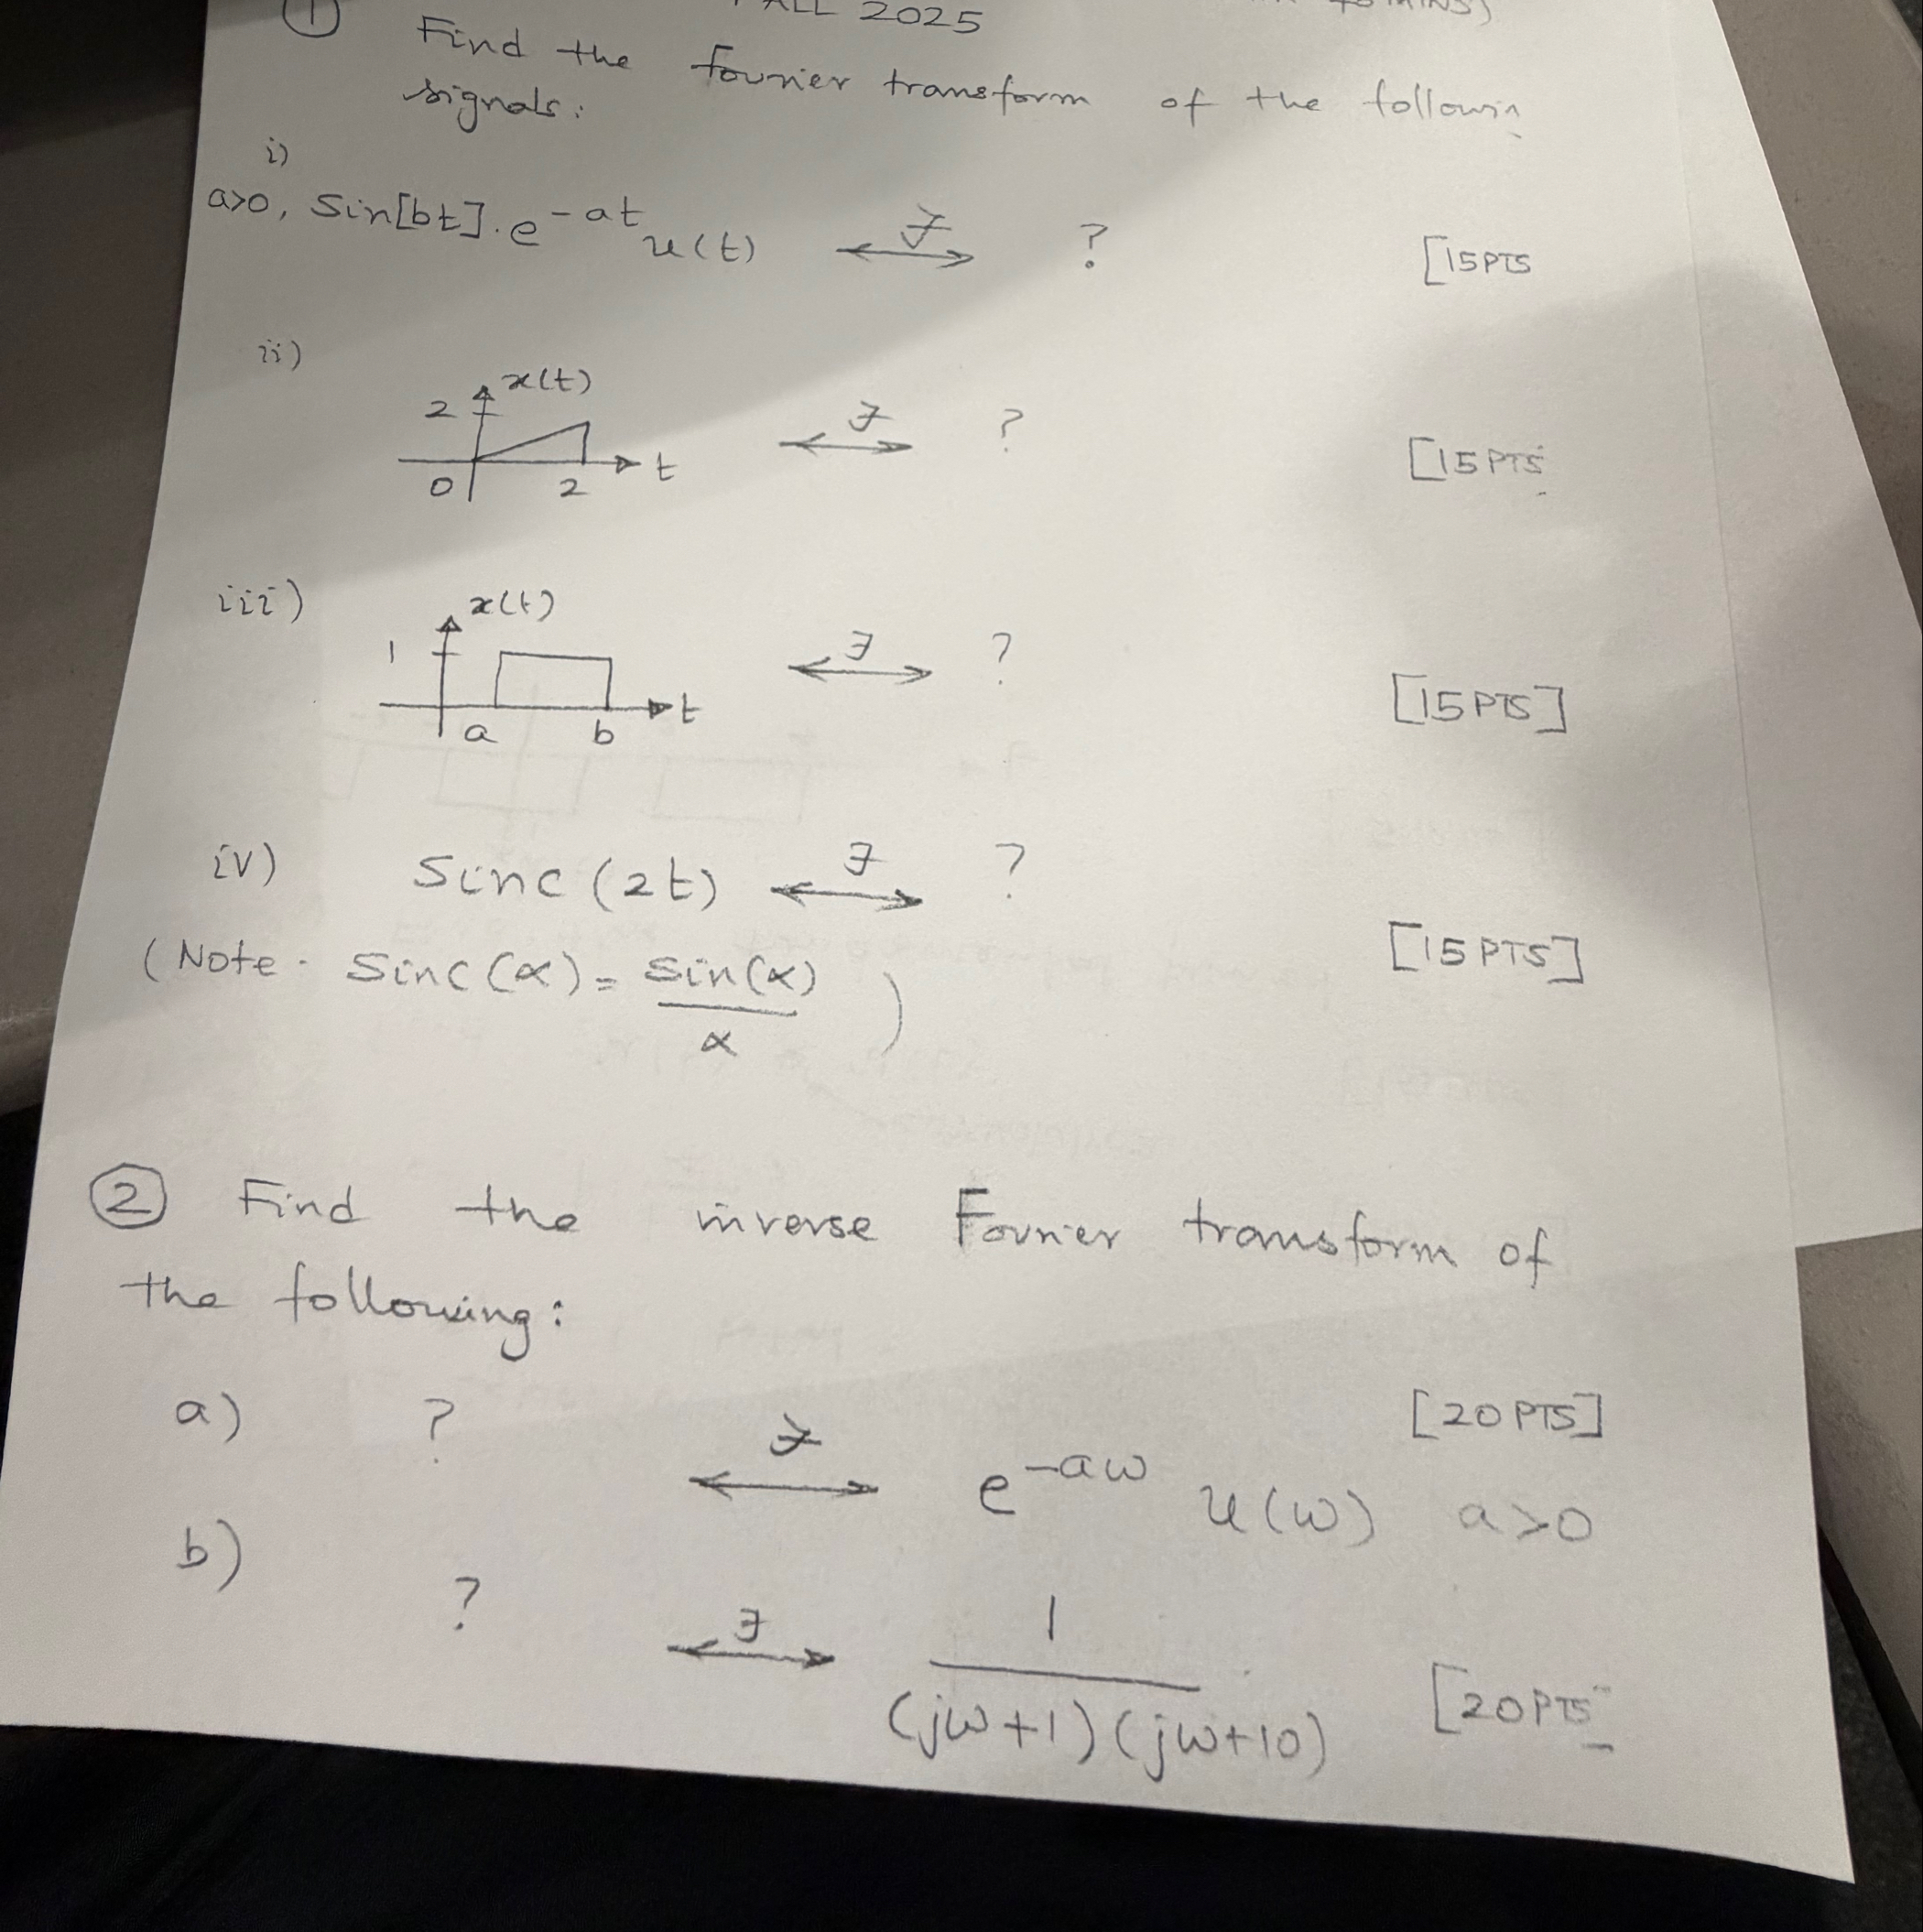 ① FALL 2025 MINS)
Find the fourier transform of the followin
signals:
i)
a>0, Sin[bt].e^-at u(t) ⟷ ℱ ? [15PTS
ii)
x(t)
2
0 2 t
ℱ ? [15PTS
iii)
x(t)
1
a b t
ℱ ? [15PTS]
iv) Sinc(2t) ⟷ ℱ ?
(Note. Sinc(α) = sin(α)/α ) [15PTS]
② Find the inverse Fourier transform of
the following:
a) ? ⟷ ℱ e^-aω u(ω) a>0 [20PTS]
b) ? ⟷ ℱ 1/(jω+1)(jω+10) [20PTS